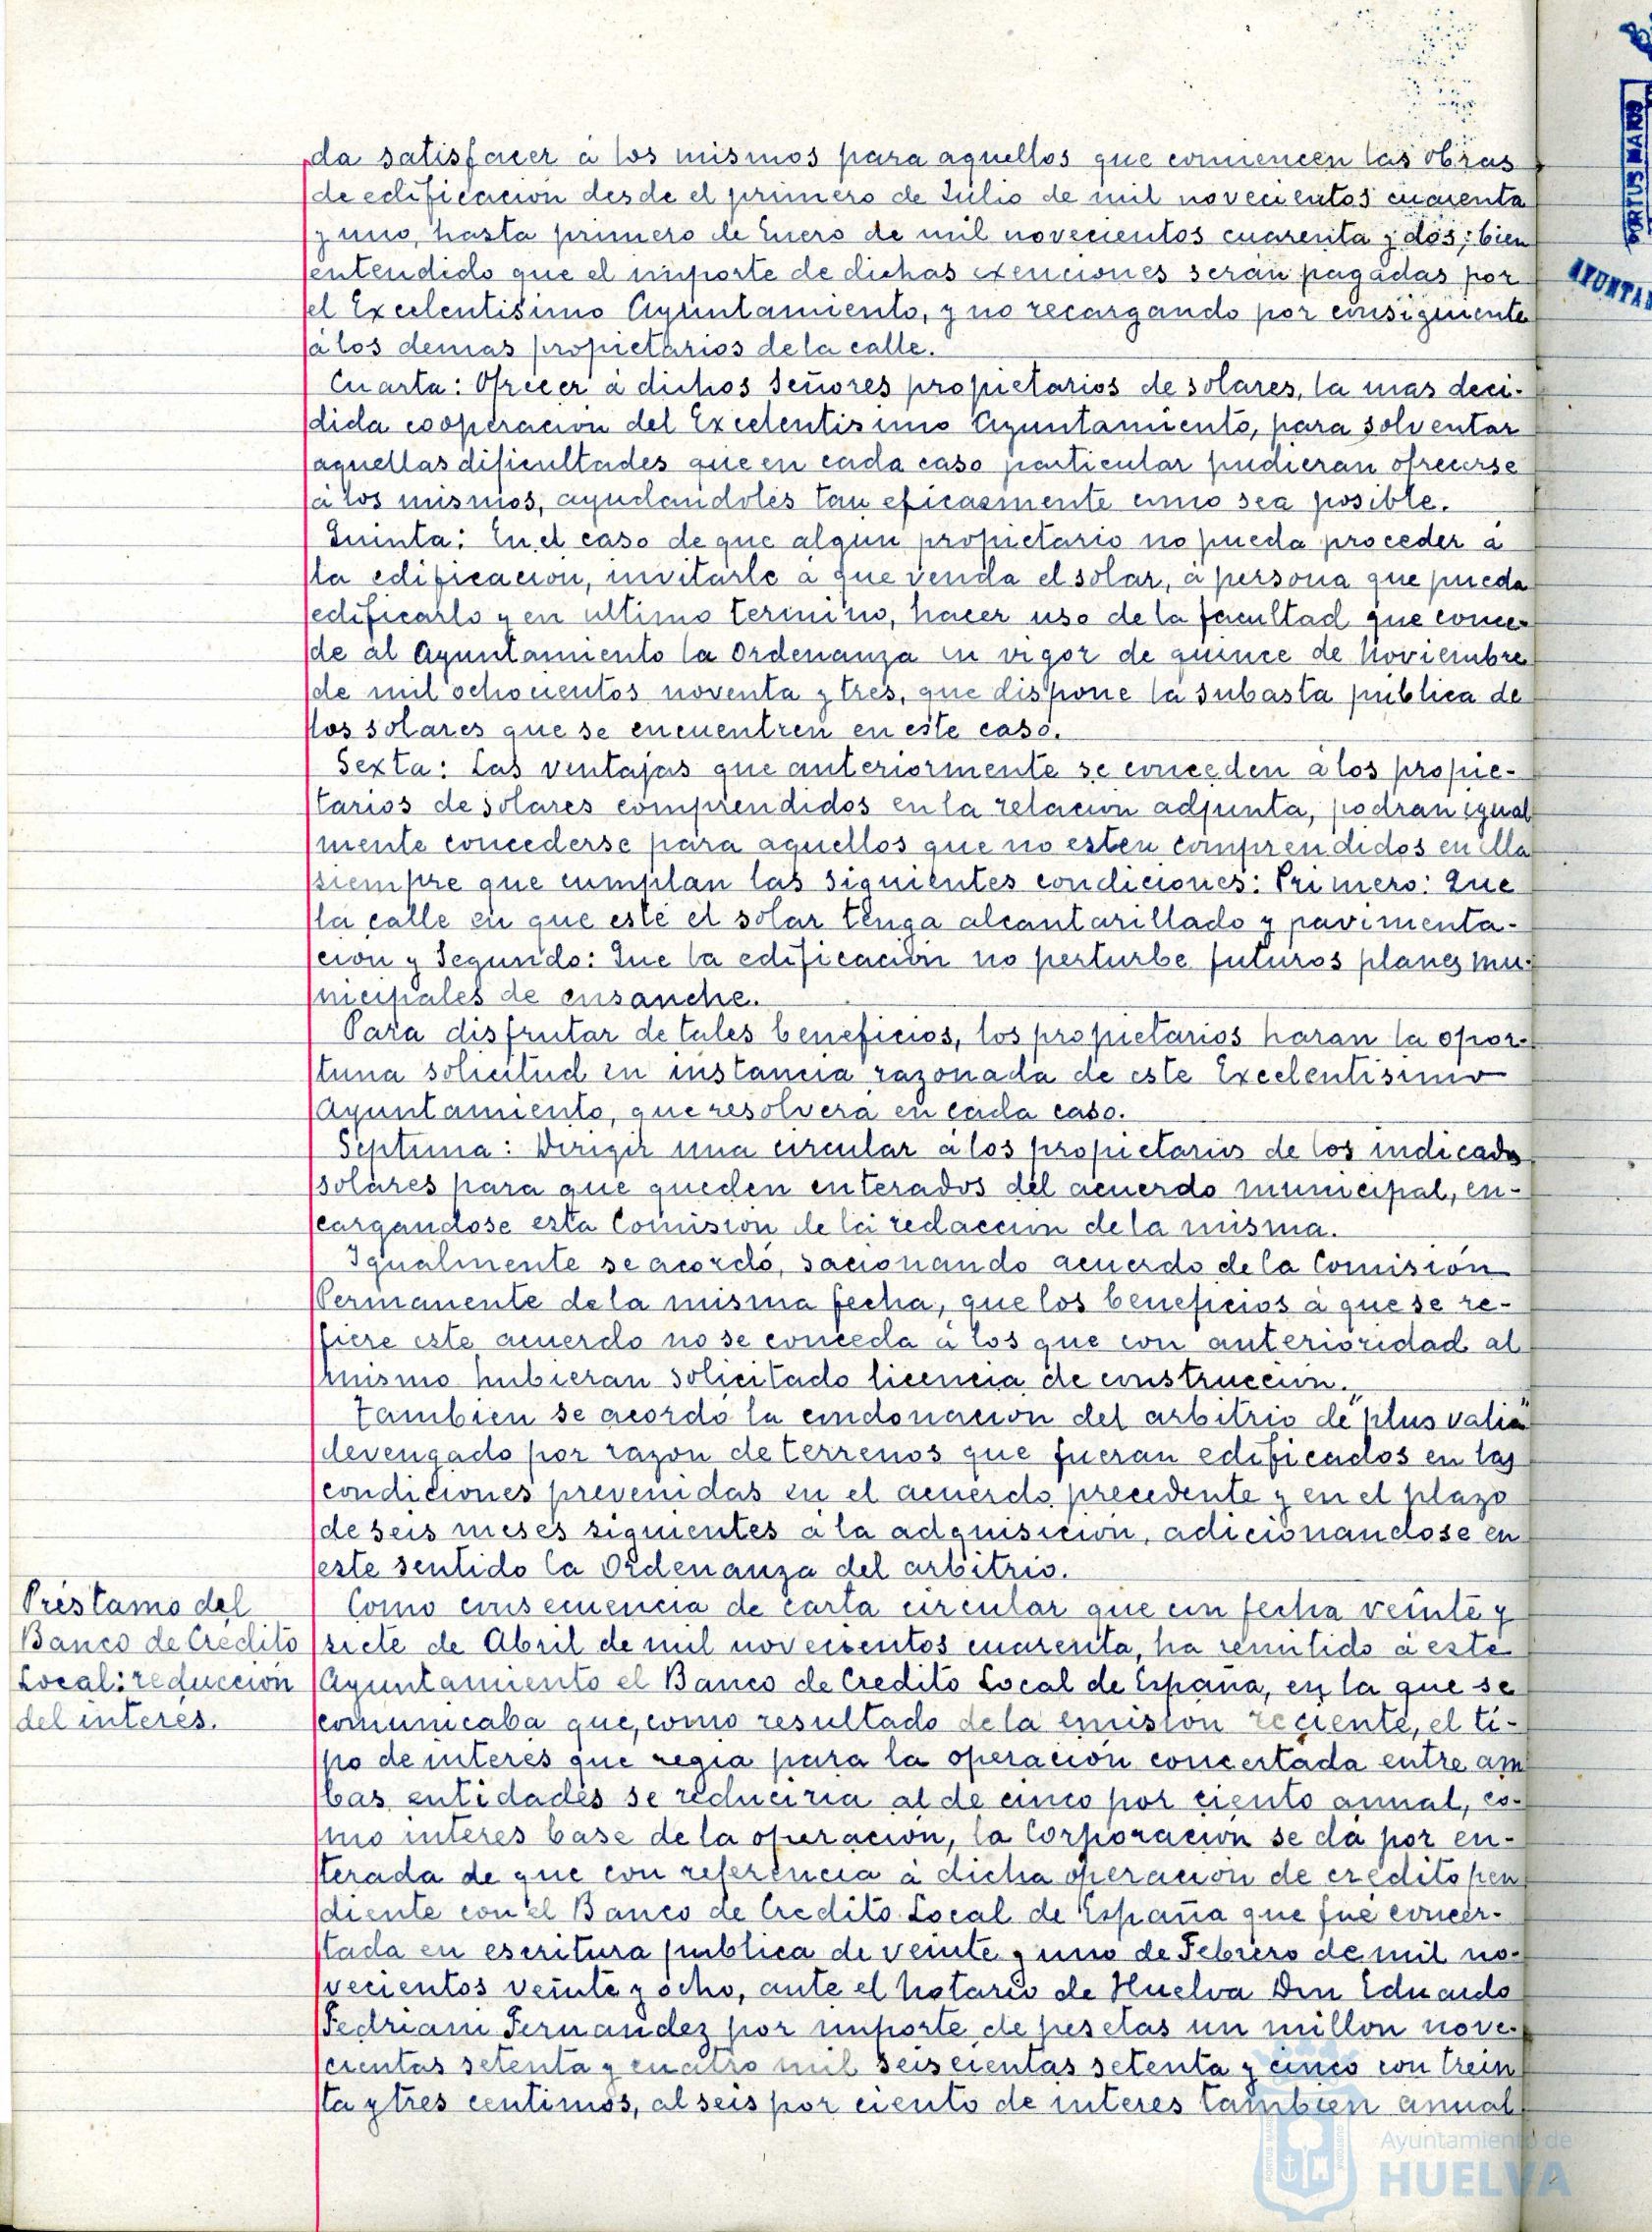 da satisfacer á los mismos para aquellos que comiencen las obras
de edificación desde el primero de Julio de mil novecientos cuarenta
y uno, hasta primero de Enero de mil novecientos cuarenta y dos; bien
entendido que el importe de dichas exenciones serán pagadas por
el Excelentisimo Ayuntamiento, y no recargando por consiguiente
á los demas propietarios de la calle.
Cuarta: Ofrecer á dichos Señores propietarios de solares, la mas deci-
dida cooperación del Excelentisimo Ayuntamiento, para solventar
aquellas dificultades que en cada caso particular pudieran ofrecerse
á los mismos, ayudandoles tan eficazmente como sea posible.
Quinta: En el caso de que algun propietario no pueda proceder á
la edificación, invitarle á que venda el solar, á persona que pueda
edificarlo y en ultimo termino, hacer uso de la facultad que conce-
de al Ayuntamiento la Ordenanza en vigor de quince de Noviembre
de mil ochocientos noventa y tres, que dispone la subasta pública de
los solares que se encuentren en este caso.
Sexta: Las ventajas que anteriormente se conceden á los propie-
tarios de solares comprendidos en la relación adjunta, podran igual
mente concederse para aquellos que no esten comprendidos en ella
siempre que cumplan las siguientes condiciones: Primero: Que
la calle en que esté el solar tenga alcantarillado y pavimenta-
ción y Segundo: Que la edificación no perturbe futuros planes mu-
nicipales de ensanche.
Para disfrutar de tales beneficios, los propietarios haran la opor-
tuna solicitud en instancia razonada de este Excelentisimo
Ayuntamiento, que resolverá en cada caso.
Septima: Dirigir una circular á los propietarios de los indicados
solares para que queden enterados del acuerdo municipal, en-
cargandose esta Comisión de la redacción de la misma.
Igualmente se acordó, sacionando acuerdo de la Comisión
Permanente de la misma fecha, que los beneficios á que se re-
fiere este acuerdo no se conceda á los que con anterioridad al
mismo hubieran solicitado licencia de construcción.
Tambien se acordó la condonación del arbitrio de "plus valia"
devengado por razon de terrenos que fueran edificados en las
condiciones prevenidas en el acuerdo precedente y en el plazo
de seis meses siguientes á la adquisición, adicionandose en
este sentido la Ordenanza del arbitrio.
Préstamo del
Banco de Crédito
Local: reducción
del interés.
Como consecuencia de carta circular que con fecha veinte y
siete de Abril de mil novecientos cuarenta, ha remitido á este
Ayuntamiento el Banco de Credito Local de España, en la que se
comunicaba que, como resultado de la emisión reciente, el ti-
po de interés que regia para la operación concertada entre am
bas entidades se reduciria al de cinco por ciento anual, co-
mo interes base de la operación, la Corporación se dá por en-
terada de que con referencia á dicha operación de crédito pen
diente con el Banco de Credito Local de España que fué concer-
tada en escritura publica de veinte y uno de Febrero de mil no-
vecientos veinte y ocho, ante el Notario de Huelva Don Eduardo
Fedriani Fernandez por importe de pesetas un millon nove-
cientas setenta y cuatro mil seiscientas setenta y cinco con trein
ta y tres centimos, al seis por ciento de interes tambien anual
PORTUS MARIS
AYUNTA
Ayuntamiento de
HUELVA